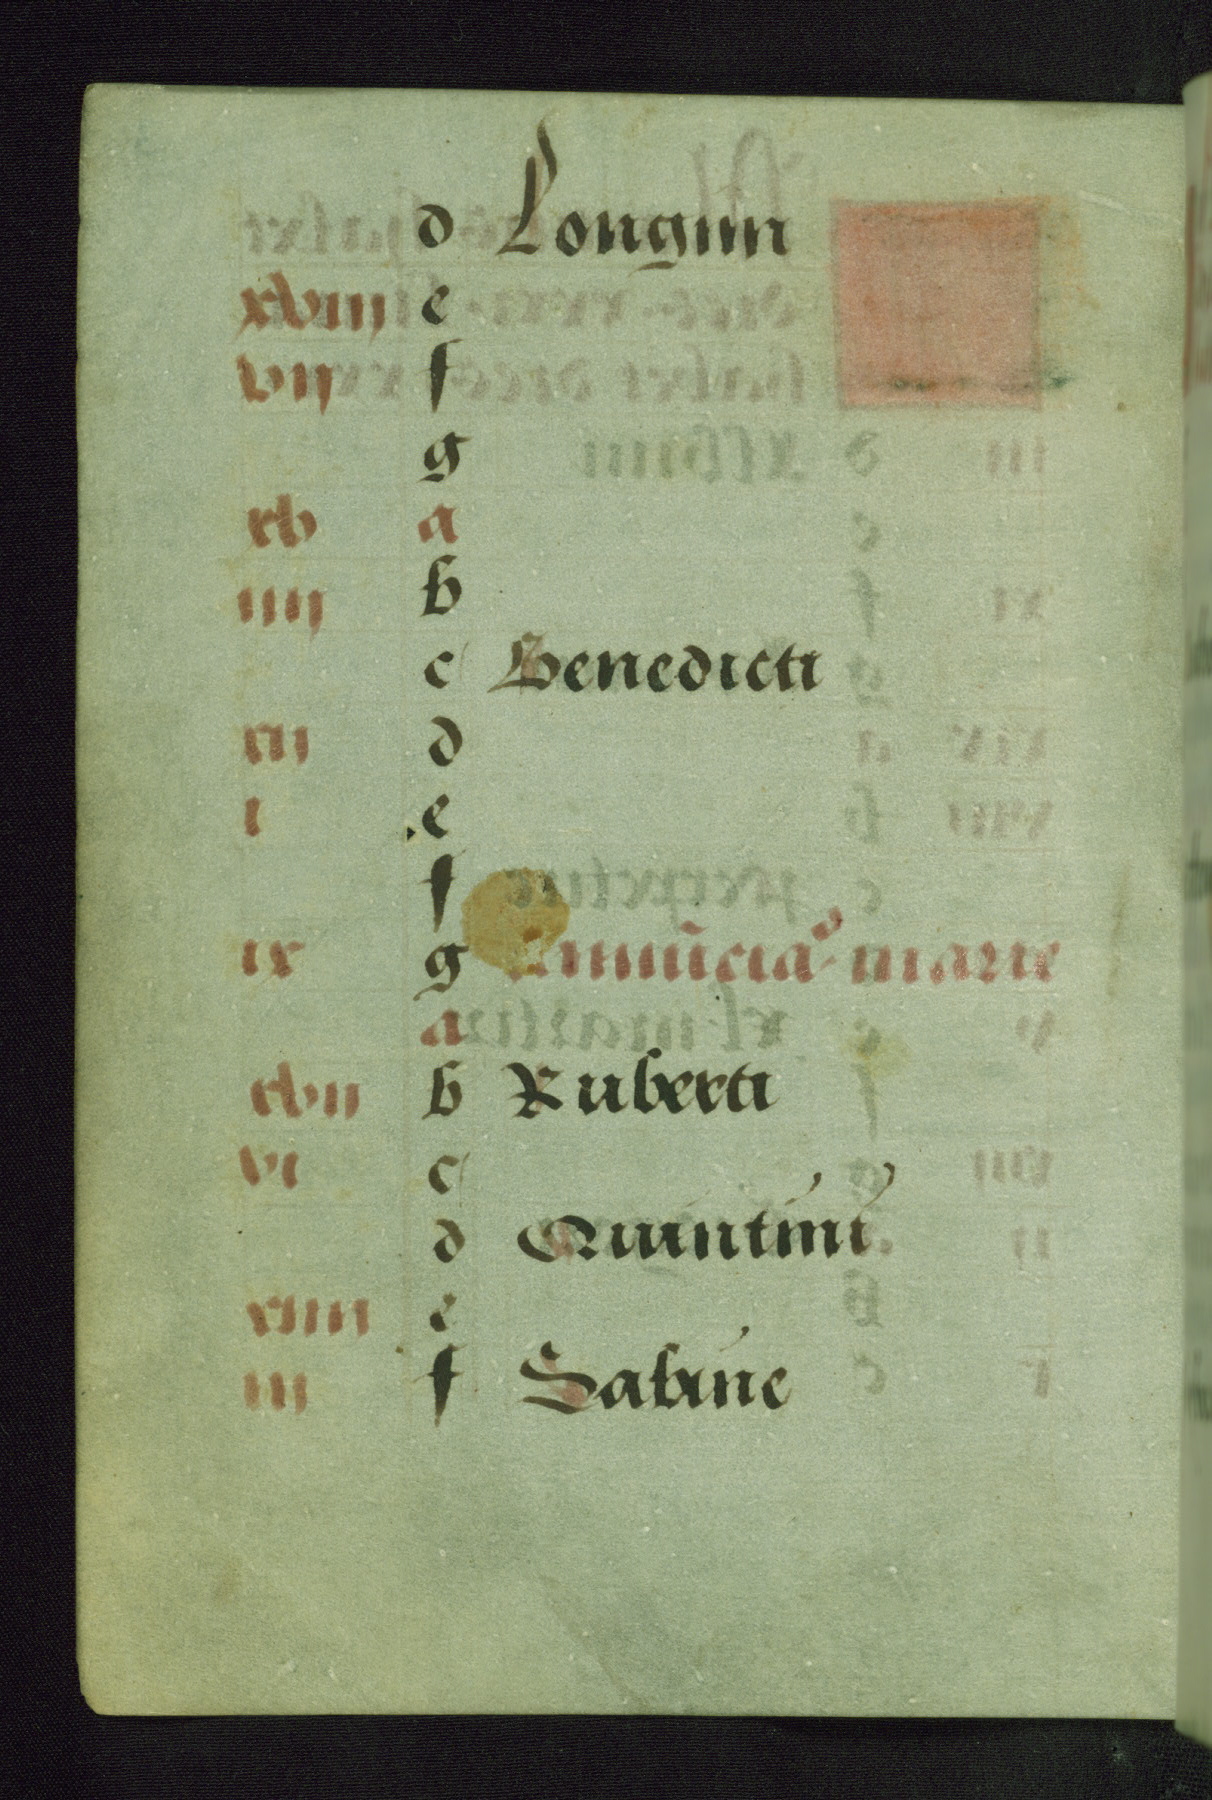 d Longini
xviii e
vii f
g
xv a
iiii b
c Benedicti
xii d
i e
f
ix g Annu̅cia° marie
a
xvii b Ruberti
vi c
d Quintini
xiiii e
iii f Sabine